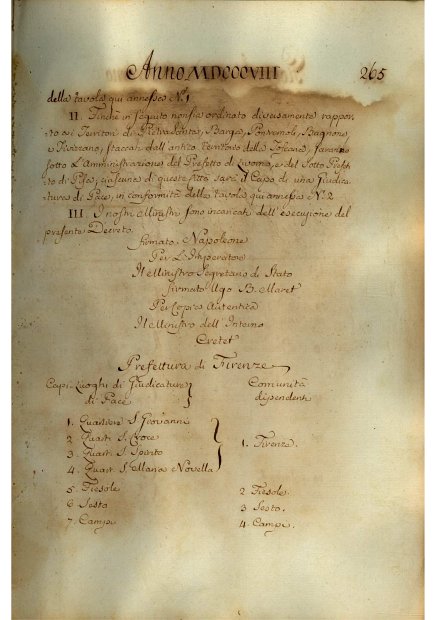 Anno MDCCCVIII 265
della tavola qui annessa N.º 1
II. Finchè in seguito non sia ordinato diversamente rappor-
to ai Territori di Pietra Santa, Barga, Pontremoli, Bagnone,
e Fivizzano, staccati dall'antico territorio della Toscana, saranno
sotto l'Amministrazione del Prefetto di Livorno, e del Sotto Prefet-
to di Pisa; ciascuna di queste Città sarà il Capo di una Giudica-
tura di Pace, in conformità della tavola qui annessa N.º 2
III. I nostri Ministri sono incaricati dell'esecuzione del
presente Decreto.
firmato. Napoleone
Per L'Imperatore
Il Ministro Segretario di Stato
firmato Ugo B. Maret
Per Copia Autentica
Il Ministro dell'Interno
Cretet
Prefettura di Firenze
Capi Luoghi di Giudicature
di Pace
Comunità
dipendenti
1. Quartiere S. Giovanni
2. Quart. S. Croce
3. Quart. S. Spirito
4. Quart. S. Maria Novella
1. Firenze.
5. Fiesole 2 Fiesole.
6 Sesto 3 Sesto.
7. Campi 4. Campi.